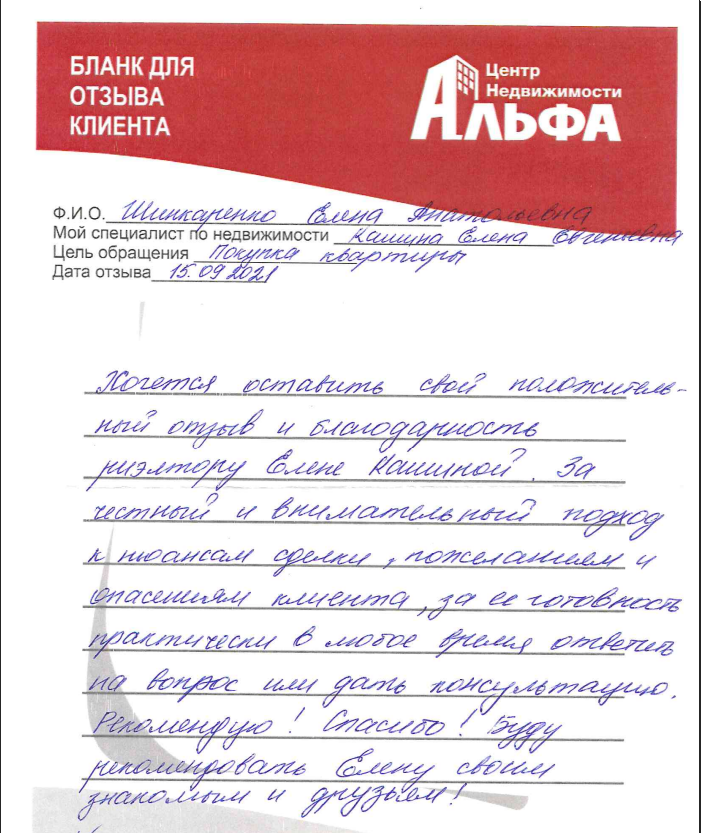 БЛАНК ДЛЯ
ОТЗЫВА
КЛИЕНТА
Центр
Недвижимости
АЛЬФА
Ф.И.О. Шинкаренко Елена Анатольевна
Мой специалист по недвижимости Кашина Елена Евгеньевна
Цель обращения Покупка квартиры
Дата отзыва 15.09.2021
Хочется оставить свой положитель-
ный отзыв и благодарность
риэлтору Елене Кашиной. За
честный и внимательный подход
к нюансам сделки, пожеланиям и
опасениям клиента, за ее готовность
практически в любое время ответить
на вопрос или дать консультацию.
Рекомендую! Спасибо! Буду
рекомендовать Елену своим
знакомым и друзьям!